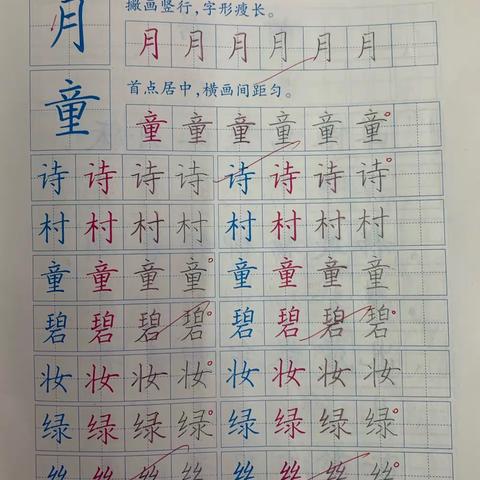 撇画竖行,字形瘦长。
月 月 月 月 月 月 月
首点居中,横画间距匀。
童 童 童 童 童 童 童
诗 诗 诗 诗 诗 诗 诗 诗
村 村 村 村 村 村 村 村
童 童 童 童 童 童 童 童
碧 碧 碧 碧 碧 碧 碧 碧
妆 妆 妆 妆 妆 妆 妆 妆
绿 绿 绿 绿 绿 绿 绿 绿
丝 丝 丝 丝 丝 丝 丝 丝